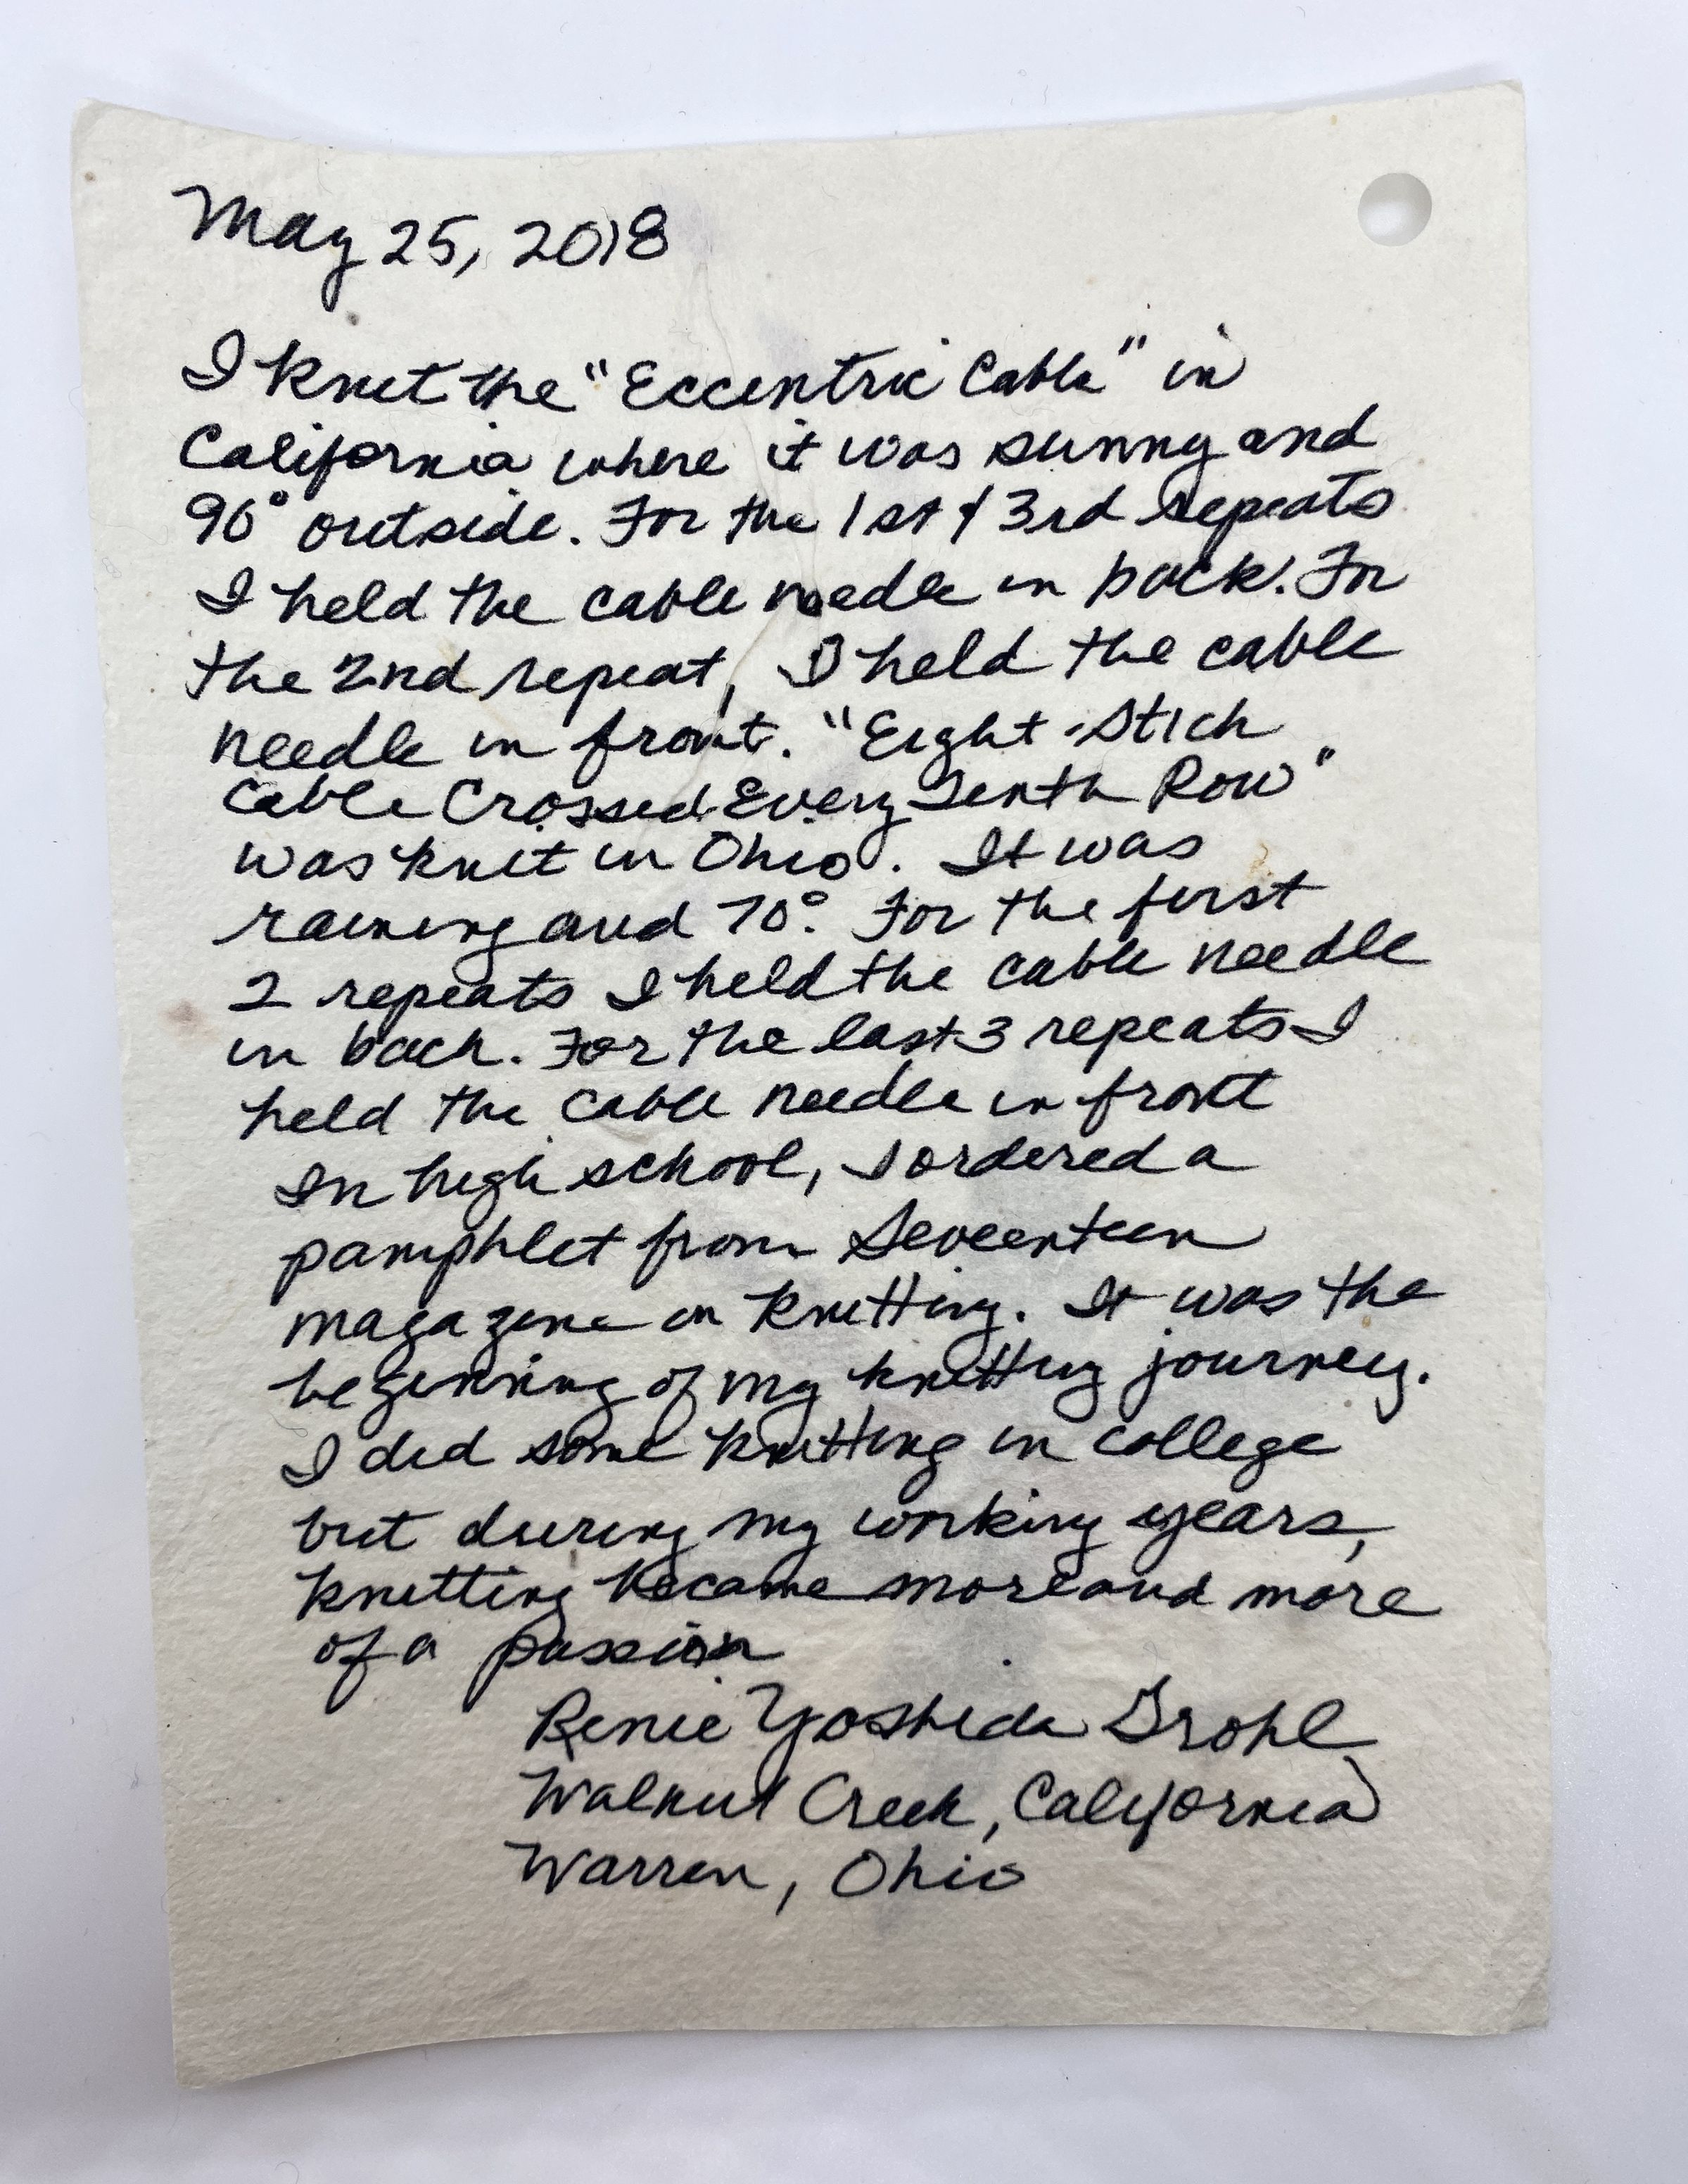 May 25, 2018
I knit the "Eccentric Cable" in
California where it was sunny and
90° outside. For the 1st & 3rd repeats
I held the cable needle in back. For
the 2nd repeat, I held the cable
needle in front. "Eight-Stich
Cable Crossed Every Tenth Row"
was knit in Ohio. It was
raining and 70°. For the first
2 repeats I held the cable needle
in back. For the last 3 repeats I
held the cable needle in front
In high school, I ordered a
pamphlet from Seventeen
magazine on knitting. It was the
beginning of my knitting journey.
I did some knitting in college
but during my working years,
knitting became more and more
of a passion
Renie Yoshida Grohl
Walnut Creek, California
Warren, Ohio